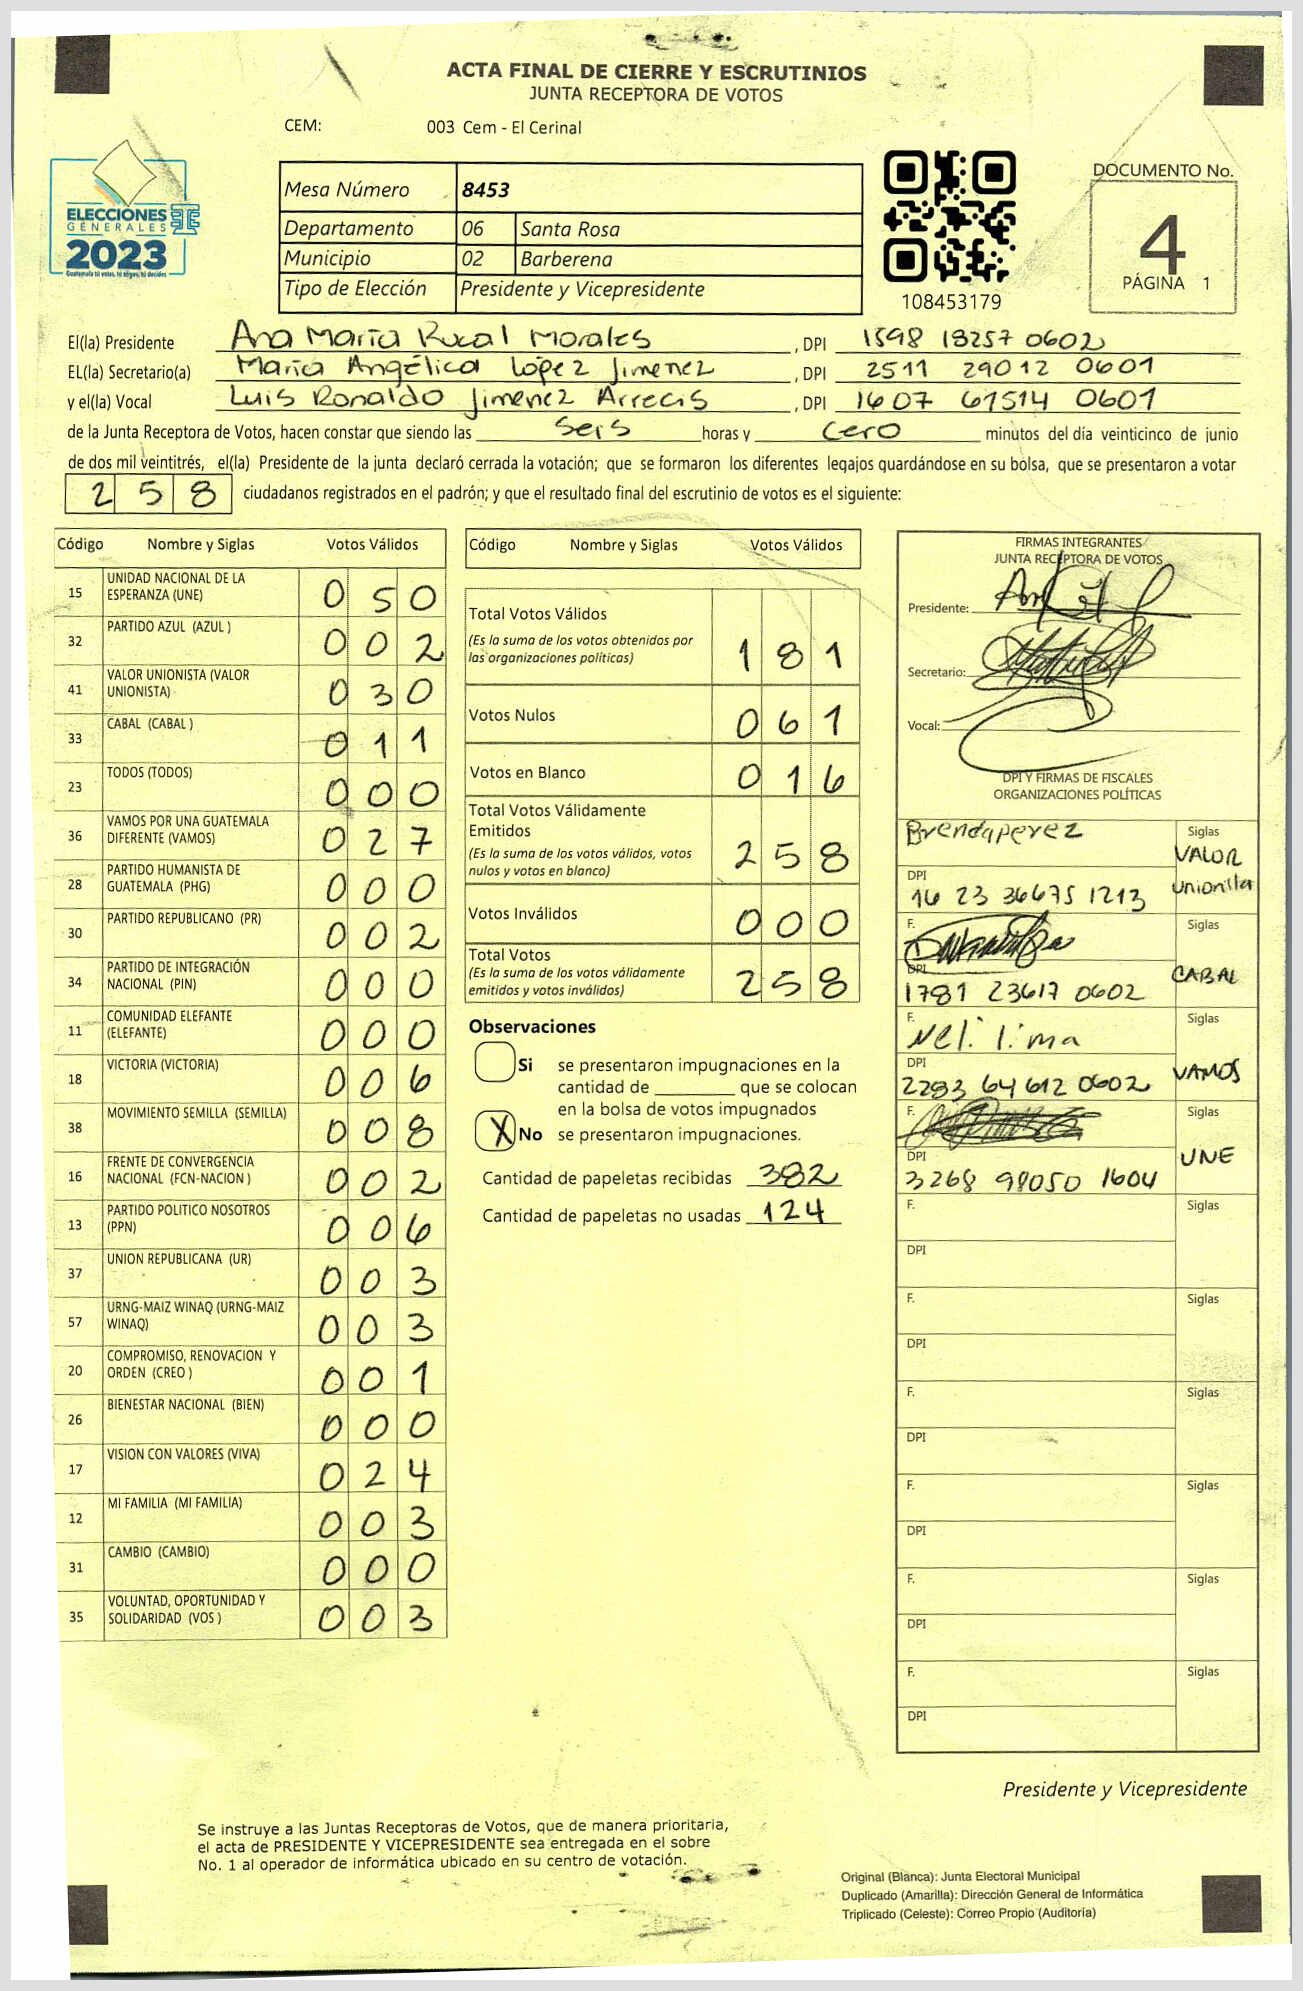 ACTA FINAL DE CIERRE Y ESCRUTINIOS
JUNTA RECEPTORA DE VOTOS
CEM: 003 Cem - El Cerinal
ELECCIONES
GENERALES
2023
Guatemala tú votas, tú eliges, tú decides
Mesa Número 8453
Departamento 06 Santa Rosa
Municipio 02 Barberena
Tipo de Elección Presidente y Vicepresidente
108453179
DOCUMENTO No.
4
PÁGINA 1
El(la) Presidente Ana María Rucal Morales, DPI 1598 18257 0602
EL(la) Secretario(a) María Angélica López Jimenez, DPI 2511 29012 0601
y el(la) Vocal Luis Ronaldo Jimenez Arrecis, DPI 1607 61514 0601
de la Junta Receptora de Votos, hacen constar que siendo las seis horas y cero minutos del día veinticinco de junio
de dos mil veintitrés, el(la) Presidente de la junta declaró cerrada la votación; que se formaron los diferentes legajos guardándose en su bolsa, que se presentaron a votar
258 ciudadanos registrados en el padrón; y que el resultado final del escrutinio de votos es el siguiente:
Código Nombre y Siglas Votos Válidos
15 UNIDAD NACIONAL DE LA ESPERANZA (UNE) 050
32 PARTIDO AZUL (AZUL ) 002
41 VALOR UNIONISTA (VALOR UNIONISTA) 030
33 CABAL (CABAL ) 011
23 TODOS (TODOS) 000
36 VAMOS POR UNA GUATEMALA DIFERENTE (VAMOS) 027
28 PARTIDO HUMANISTA DE GUATEMALA (PHG) 000
30 PARTIDO REPUBLICANO (PR) 002
34 PARTIDO DE INTEGRACIÓN NACIONAL (PIN) 000
11 COMUNIDAD ELEFANTE (ELEFANTE) 000
18 VICTORIA (VICTORIA) 006
38 MOVIMIENTO SEMILLA (SEMILLA) 008
16 FRENTE DE CONVERGENCIA NACIONAL (FCN-NACION ) 002
13 PARTIDO POLITICO NOSOTROS (PPN) 006
37 UNION REPUBLICANA (UR) 003
57 URNG-MAIZ WINAQ (URNG-MAIZ WINAQ) 003
20 COMPROMISO, RENOVACION Y ORDEN (CREO ) 001
26 BIENESTAR NACIONAL (BIEN) 000
17 VISION CON VALORES (VIVA) 024
12 MI FAMILIA (MI FAMILIA) 003
31 CAMBIO (CAMBIO) 000
35 VOLUNTAD, OPORTUNIDAD Y SOLIDARIDAD (VOS ) 003
Código Nombre y Siglas Votos Válidos
Total Votos Válidos 181
(Es la suma de los votos obtenidos por
las organizaciones políticas)
Votos Nulos 061
Votos en Blanco 016
Total Votos Válidamente
Emitidos 258
(Es la suma de los votos válidos, votos
nulos y votos en blanco)
Votos Inválidos 000
Total Votos 258
(Es la suma de los votos válidamente
emitidos y votos inválidos)
Observaciones
Si se presentaron impugnaciones en la
cantidad de ________ que se colocan
en la bolsa de votos impugnados
X No se presentaron impugnaciones.
Cantidad de papeletas recibidas 382
Cantidad de papeletas no usadas 124
FIRMAS INTEGRANTES
JUNTA RECEPTORA DE VOTOS
Presidente:
Secretario:
Vocal:
DPI Y FIRMAS DE FISCALES
ORGANIZACIONES POLÍTICAS
Brenda perez Siglas
VALOR
DPI unionista
16 23 36675 1213
F. Siglas
DPI CABAL
1781 23617 0602
F. Neli lima Siglas
DPI VAMOS
2283 64 612 0602
F. Siglas
DPI UNE
3268 98050 1604
F. Siglas
DPI
F. Siglas
DPI
F. Siglas
DPI
F. Siglas
DPI
F. Siglas
DPI
F. Siglas
DPI
Presidente y Vicepresidente
Se instruye a las Juntas Receptoras de Votos, que de manera prioritaria,
el acta de PRESIDENTE Y VICEPRESIDENTE sea entregada en el sobre
No. 1 al operador de informática ubicado en su centro de votación.
Original (Blanca): Junta Electoral Municipal
Duplicado (Amarilla): Dirección General de Informática
Triplicado (Celeste): Correo Propio (Auditoría)